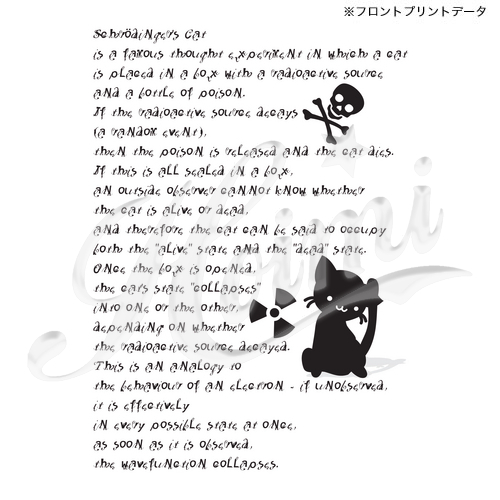 ※フロントプリントデータ
Schrödingers Cat
is a famous thought experiment in which a cat
is placed in a box with a radioactive source
and a bottle of poison.
If the radioactive source decays
(a random event),
then the poison is released and the cat dies.
If this is all sealed in a box,
an outside observer cannot know whether
the cat is alive or dead,
and therefore the cat can be said to occupy
both the "alive" state and the "dead" state.
Once the box is opened,
the cats state "collapses"
into one or the other,
depending on whether
the radioactive source decayed.
This is an analogy to
the behaviour of an electron - if unobserved,
it is effectively
in every possible state at once,
as soon as it is observed,
the wavefunction collapses.